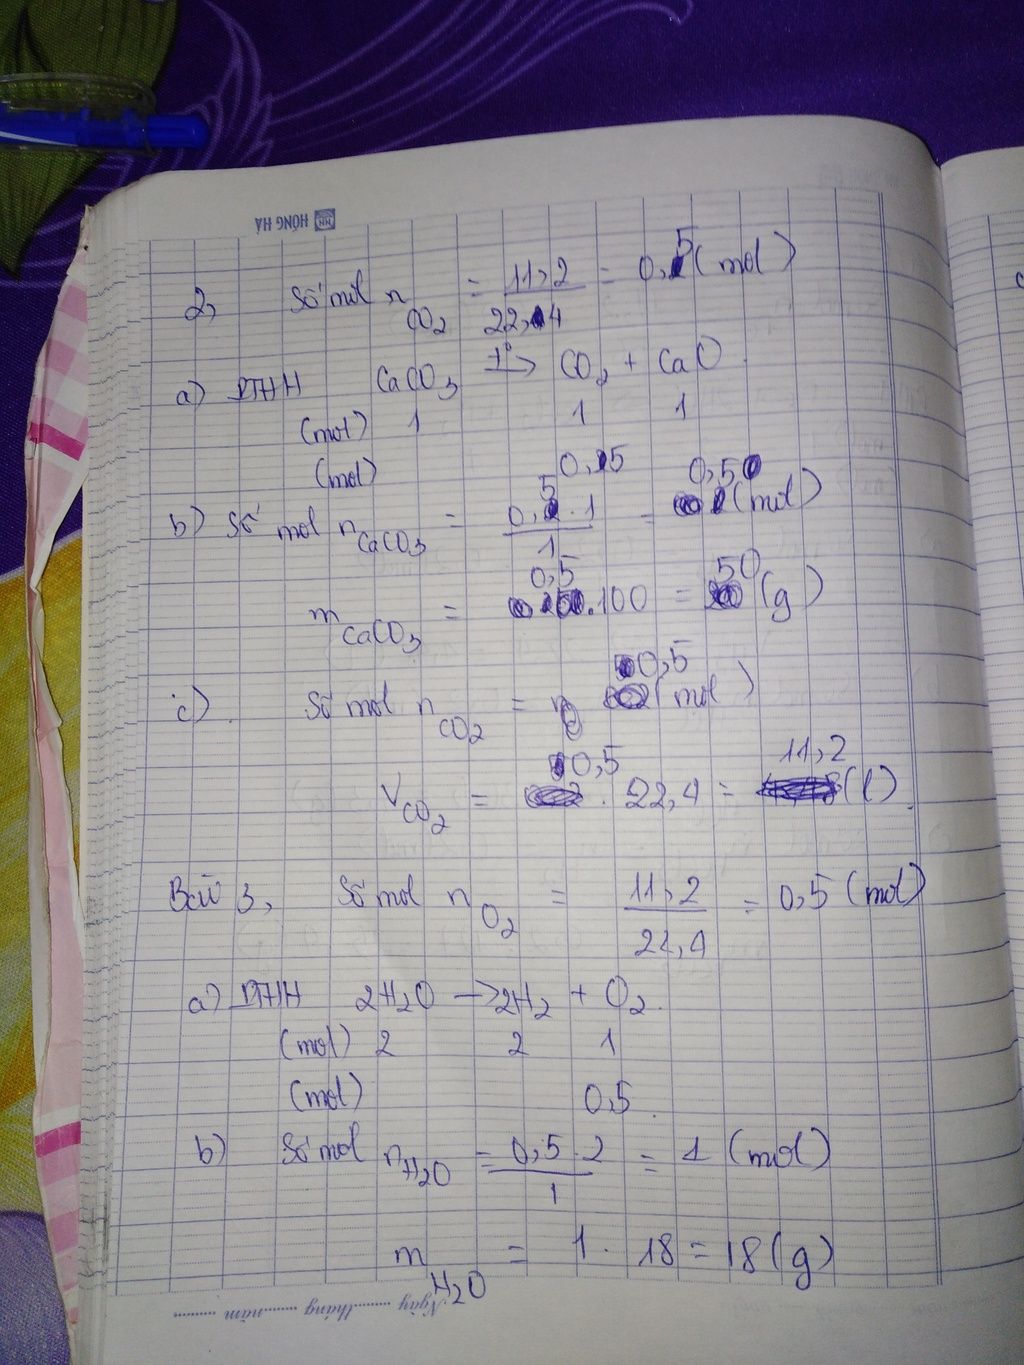 HỒNG HÀ
2, Số mol n CO2 = 11,2 / 22,4 = 0,5 (mol)
a) PTHH CaCO3 t° → CO2 + CaO
(mol) 1 1 1
(mol) 0,5
b) Số mol n CaCO3 = 0,5 . 1 / 1 = 0,50 (mol)
m CaCO3 = 0,5 .100 = 50 (g)
c) Số mol n CO2 = 0,5 (mol)
V CO2 = 0,5 . 22,4 = 11,2 (l)
Bài 3, Số mol n O2 = 11,2 / 22,4 = 0,5 (mol)
a) PTHH 2H2O → 2H2 + O2
(mol) 2 2 1
(mol) 0,5
b) Số mol n H2O = 0,5 . 2 / 1 = 1 (mol)
m H2O = 1 . 18 = 18 (g)
Ngày ........ tháng ........ năm ............